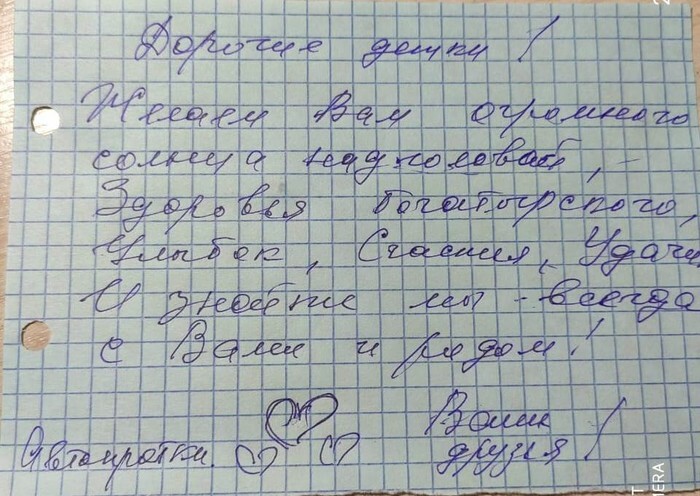 Дорогие детки!
Желаем Вам огромного
солнца над головой,
Здоровья богатырского,
Улыбок, Счастия, Удачи
И знайте мы - всегда
с Вами и рядом!
Ваши
друзья!